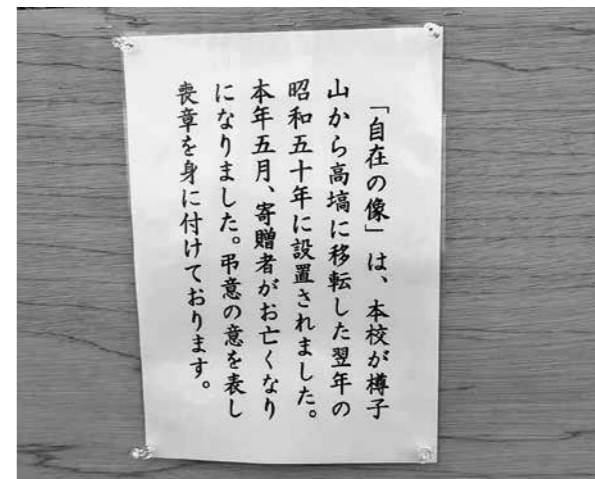 「自在の像」は、本校が樽子
山から高塙に移転した翌年の
昭和五十年に設置されました。
本年五月、寄贈者がお亡くなり
になりました。弔意の意を表し
喪章を身に付けております。